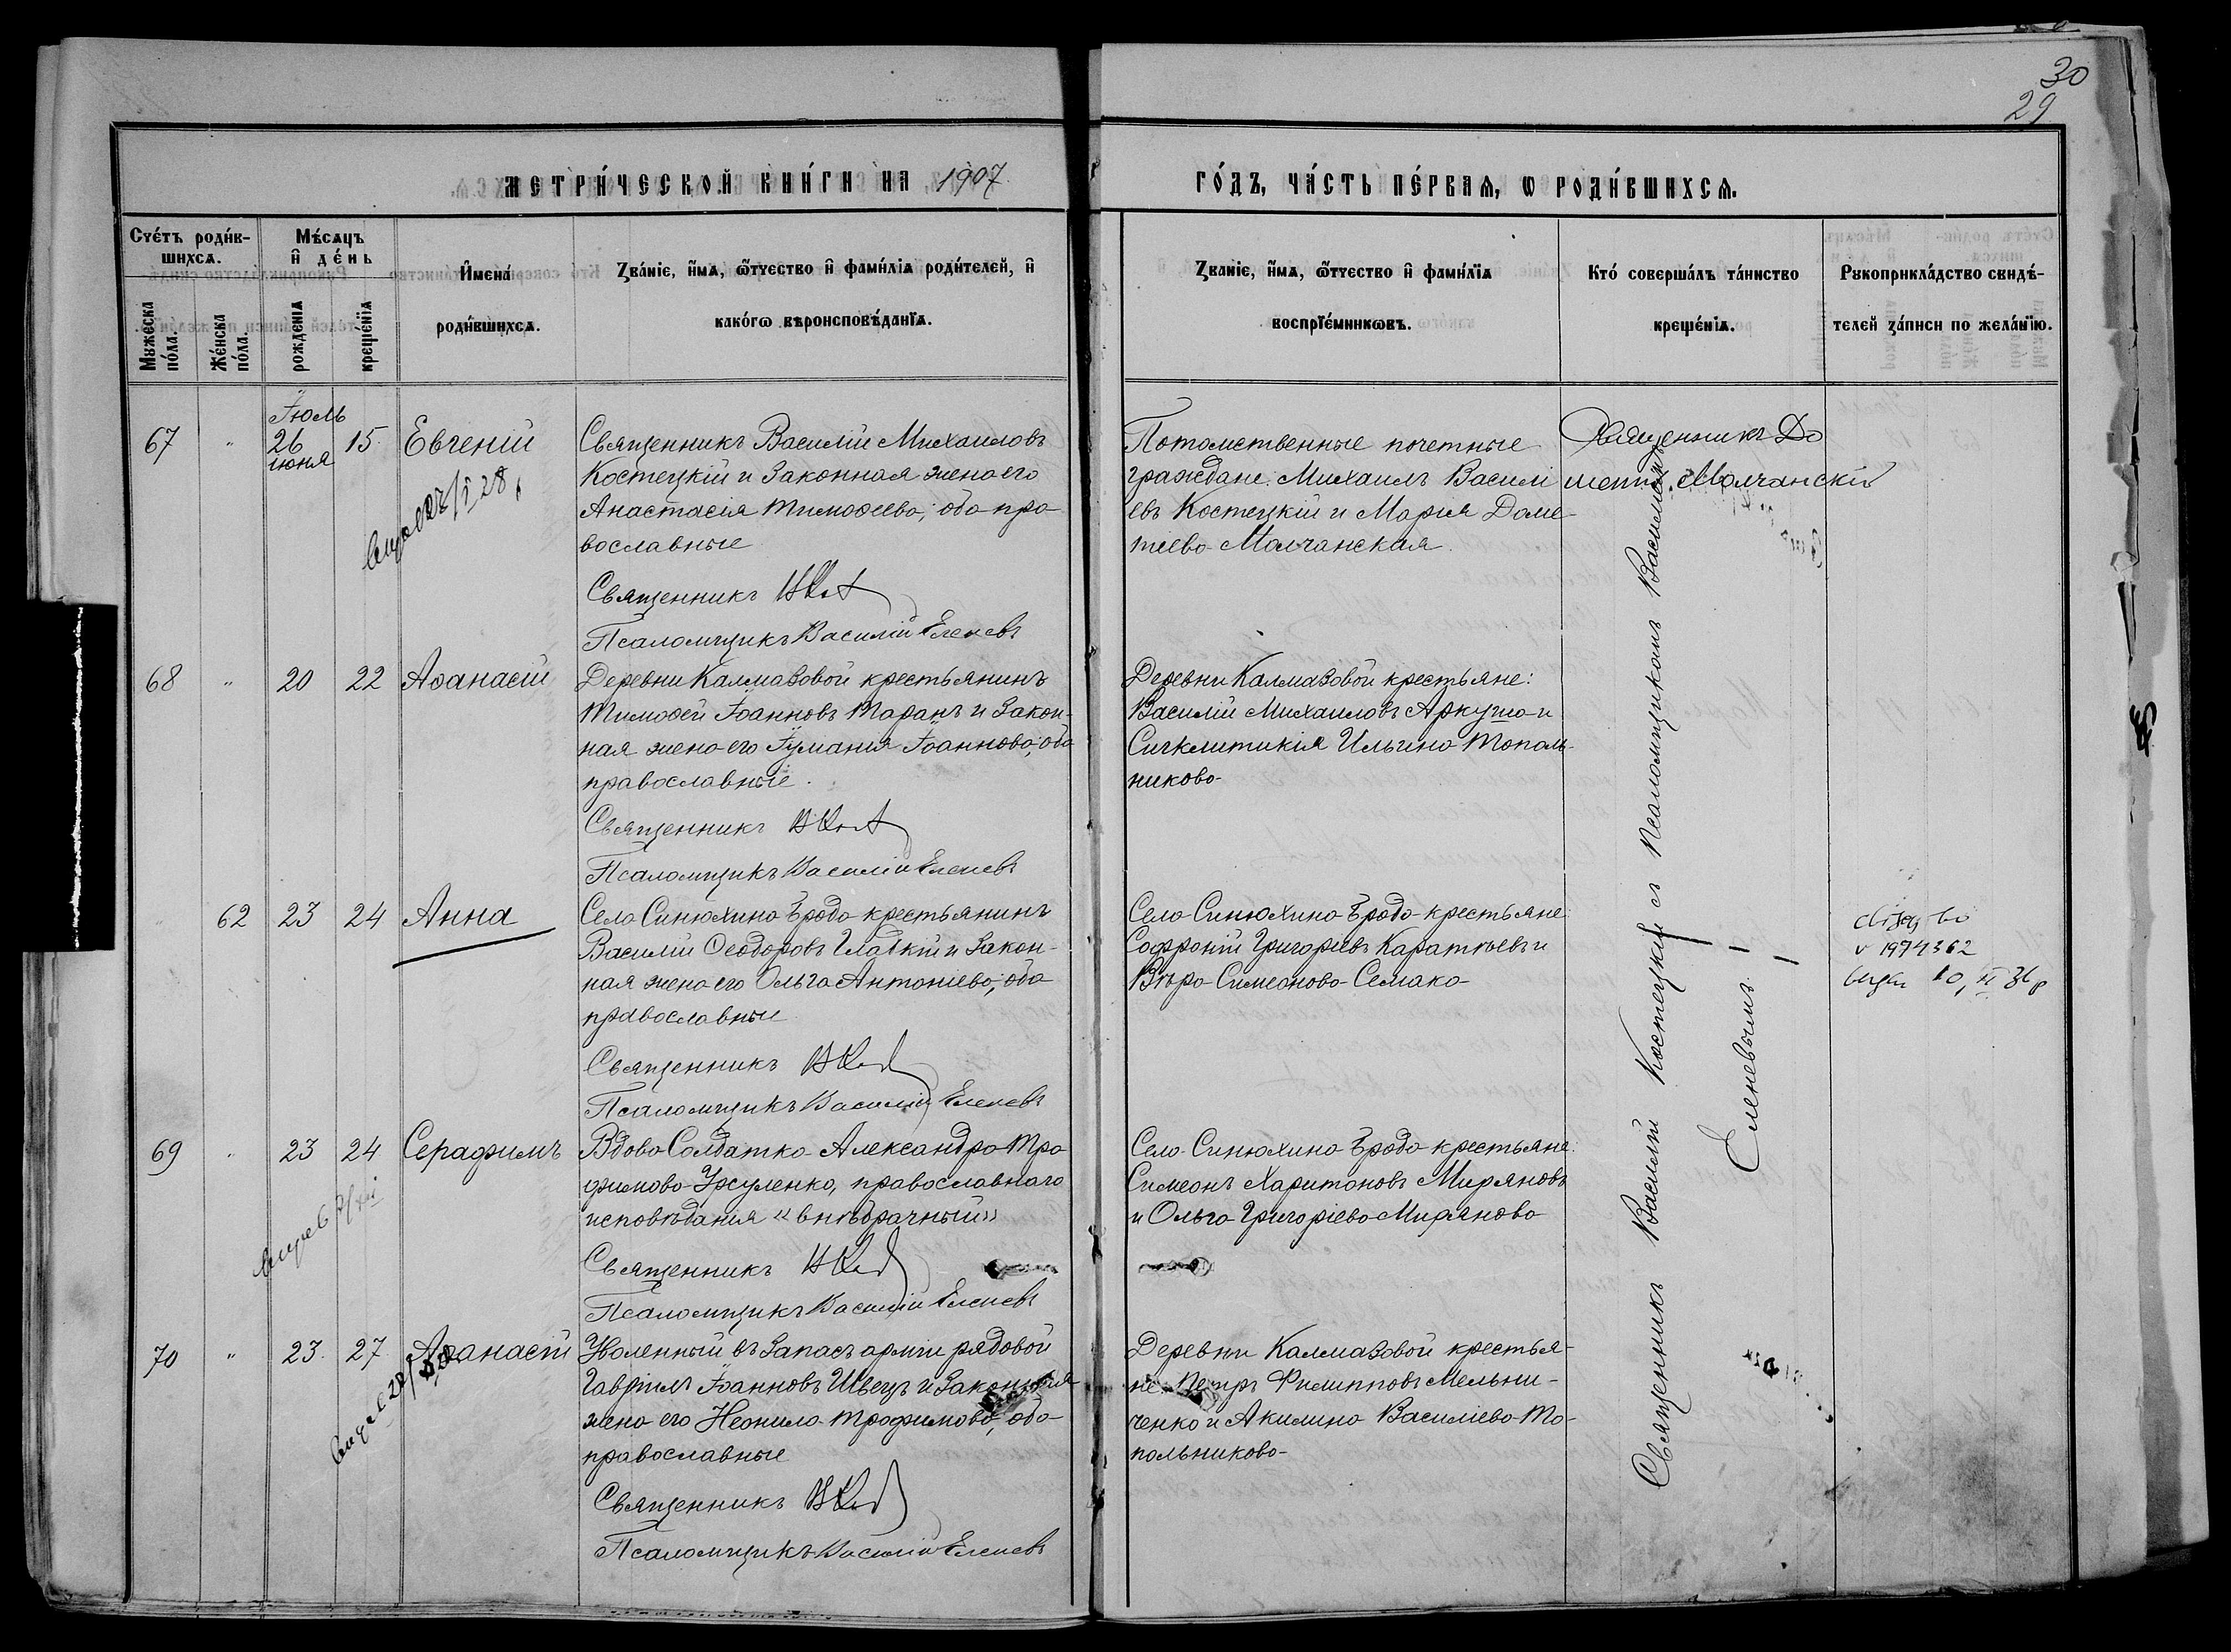 30
29
метри́ческой кни́ги на 1907
го́дъ, ча́сть пе́рваѧ, ѡ роди́вшихсѧ.
Сче́тъ роди́в-
шихсѧ.
Мѣ́сѧцъ
и҆ де́нь
Мꙋжеска по́ла.
Же́нска по́ла.
рожденїѧ
креще́нїѧ
И҆мена́
роди́вшихсѧ.
Зва́нїе, и҆мѧ, ѻ҆тчество и҆ фами́лїѧ роди́телей, и҆
како́гѡ вѣроисповѣ́данїѧ.
Званїе, и҆мѧ, ѻ҆тчество и҆ фами́лїѧ
воспрїе́мникѡвъ.
Кто́ соверша́лъ та́инство
креще́нїѧ.
Рꙋкоприкла́дство свидѣ́-
телей за́писи по жела́нїю.
67 " Іюль 26 іюня 15 Евгеній
Священникъ Василій Михаиловъ
Костецкій и законная жена его
Анастасія Тимоѳеева, оба пра-
вославные
Священникъ
Псаломщикъ Василій Еленевъ
Потомственные почетные
граждане: Михаилъ Василі
евъ Костецкій и Марія Доме-
тіева Молчанская.
Священникъ До
метій Молчанскій
68 " 20 22 Аѳанасій
Деревни Калмазовой крестьянинъ
Тимоѳей Іоанновъ Таранъ и закон-
ная жена его Іуліанія Іоаннова, оба
православные.
Священникъ
Псаломщикъ Василій Еленевъ
Деревни Калмазовой крестьяне:
Василій Михаиловъ Аркуша и
Синклитикія Ильина Тополь-
никова
62 23 24 Анна
Села Синюхина Брода крестьянинъ
Василій Ѳеодоровъ Гладкій и закон-
ная жена его Ольга Антоніева, оба
православные
Священникъ
Псаломщикъ Василій Еленевъ
Села Синюхина Брода крестьяне:
Софроній Григоріевъ Каратѣевъ и
Вѣра Симеонова Семака
1974362
69 " 23 24 Серафимъ
Вдова Солдатка Александра Тро
фимова Урсуленко, православнаго
исповѣданія «внѣбрачный»
Священникъ
Псаломщикъ Василій Еленевъ
Села Синюхина Брода крестьяне:
Симеонъ Харитоновъ Миряновъ
и Ольга Григоріева Мирянова
70 " 23. 27 Аѳанасій
Уволенный въ запасъ арміи рядовой
Гавріилъ Іоанновъ Швецъ и законная
жена его Неонила Трофимова, оба
православные
Священникъ
Псаломщикъ Василій Еленевъ
Деревни Калмазовой крестья-
не: Петръ Филипповъ Мельни-
ченко и Акилина Василіева То-
польникова
Священникъ Василій Костецкій съ Псаломщикомъ Василіемъ
Еленевымъ